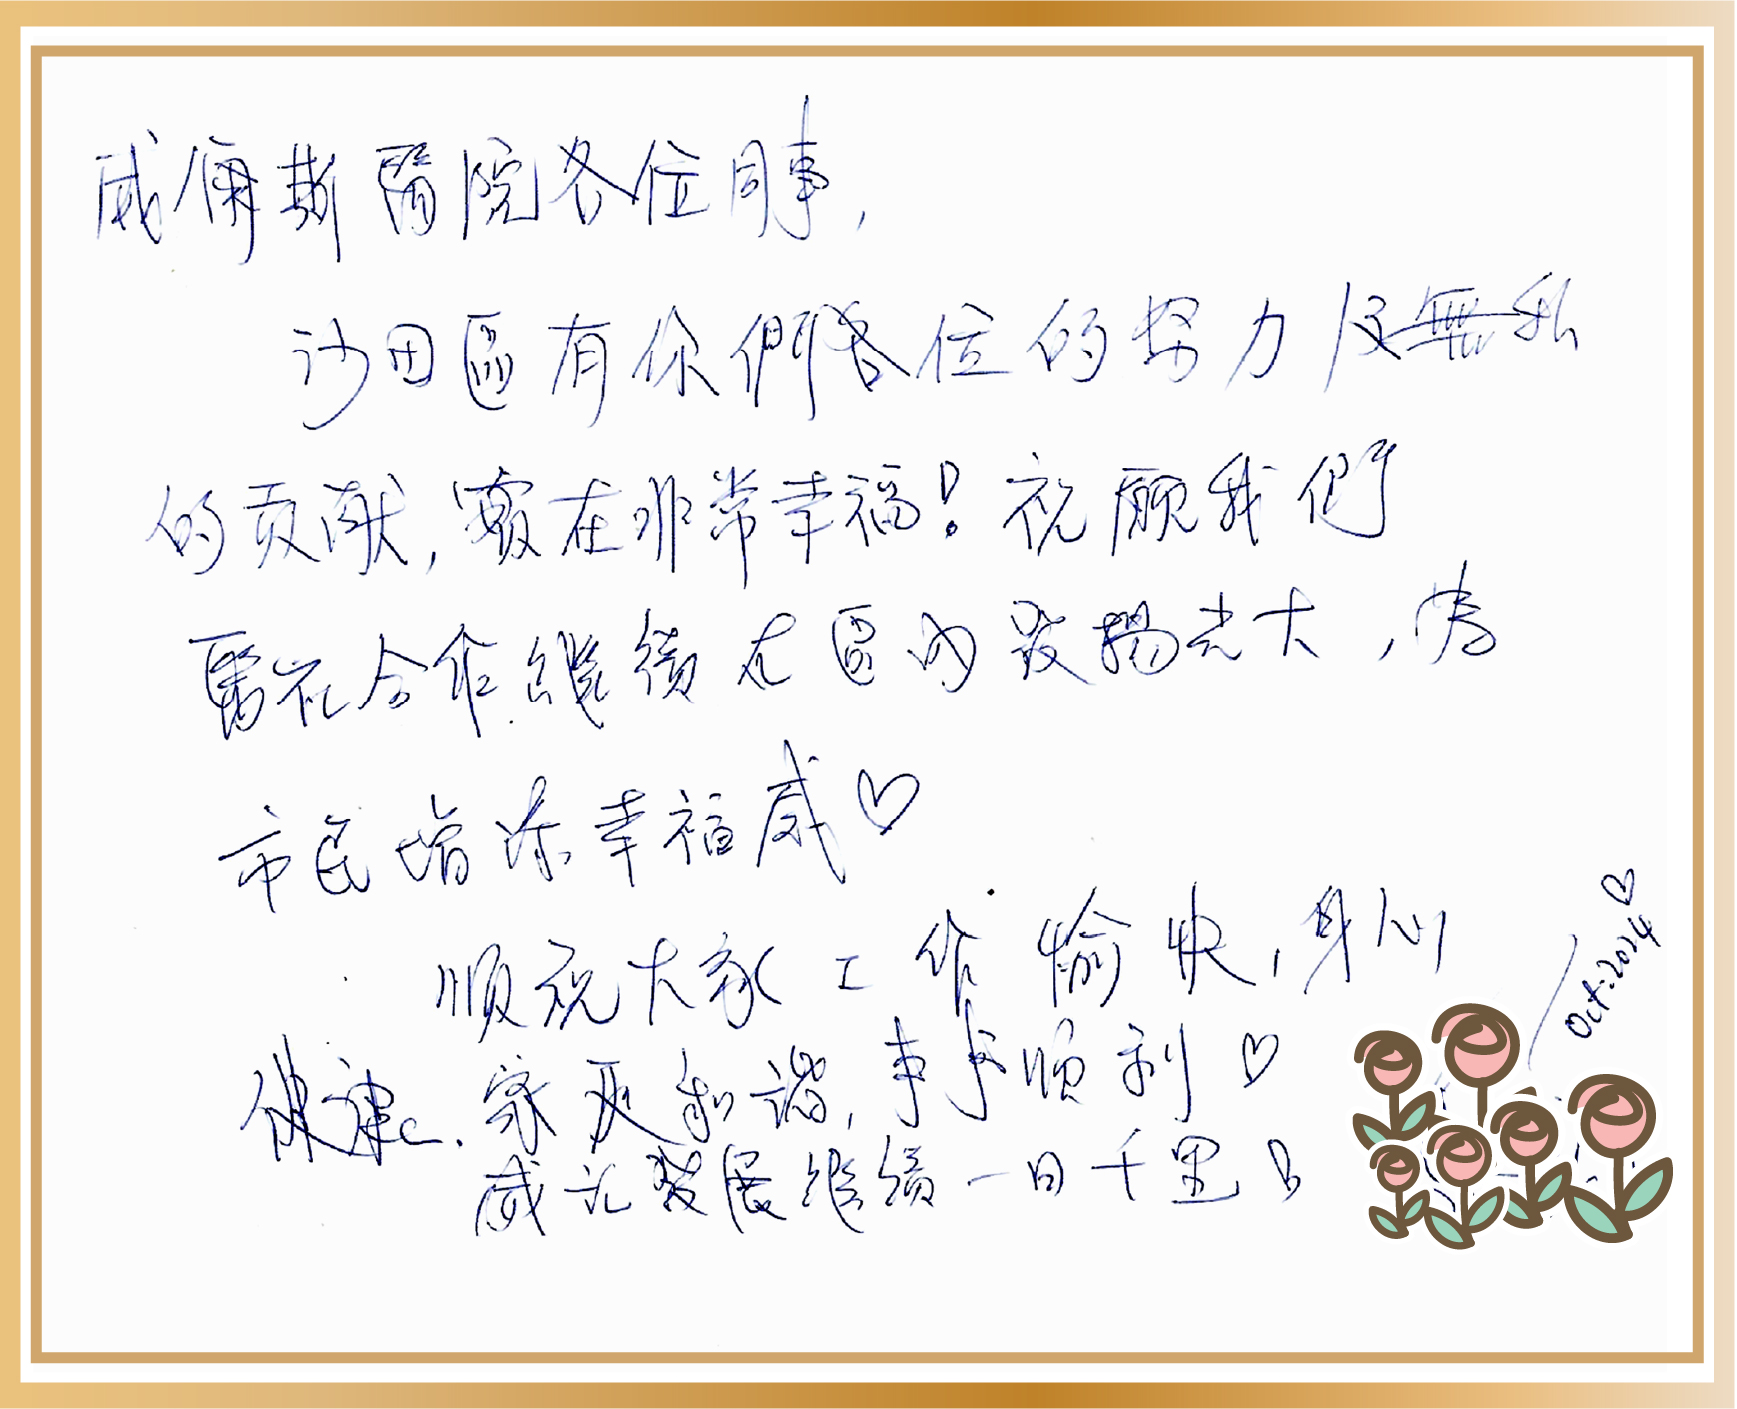 威爾斯醫院各位同事,
沙田區有你們各位的努力及無私
的贡献,實在非常幸福!祝願我們
醫社合作繼續在區內發揚光大,為
市民增添幸福感♡
順祝大家工作愉快,身心
健康.家庭和諧,事事順利♡
威記發展繼續一日千里!
Oct. 2024♡